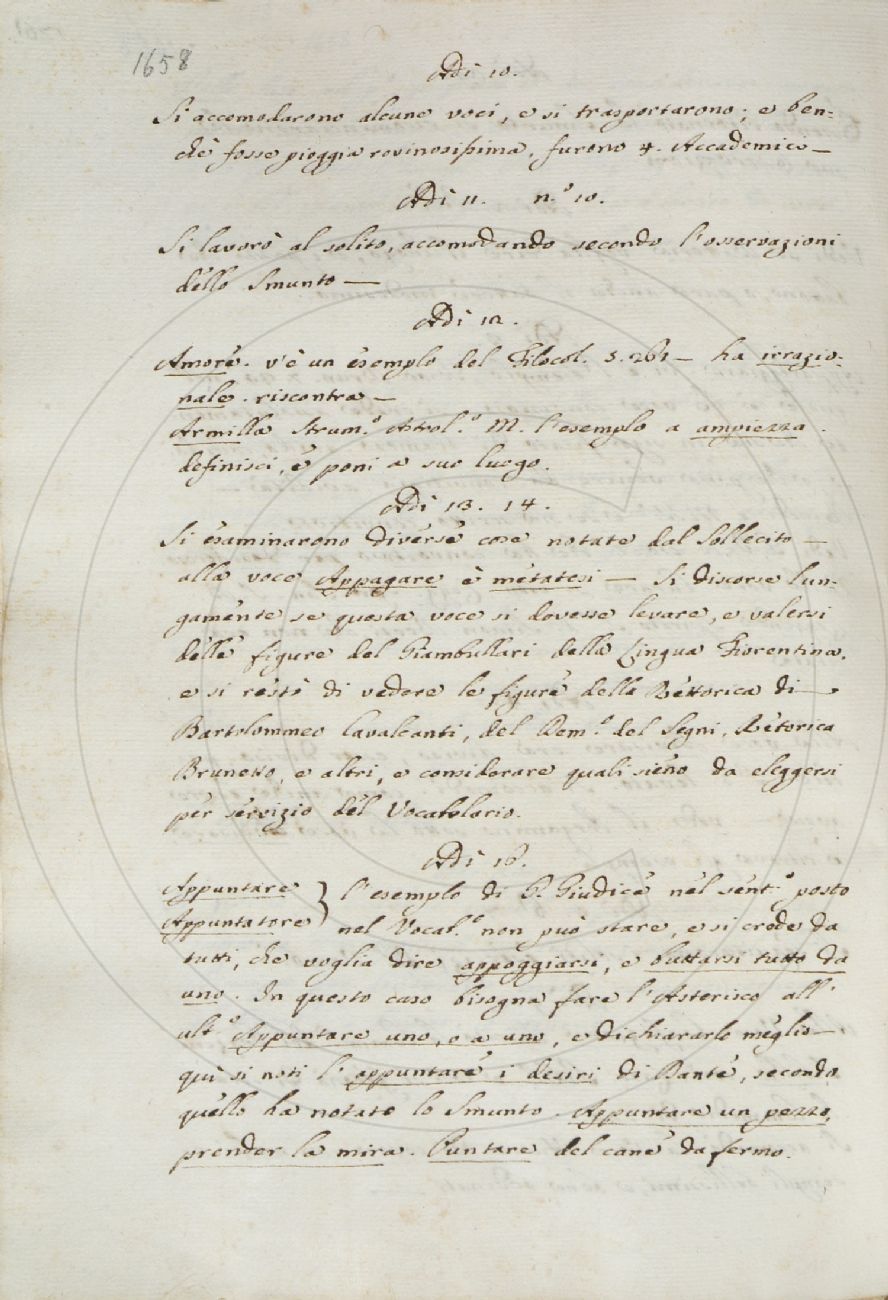 1658
Adi 10.
Si accomodarono alcune voci, e si trasportarono; e ben=
chè fosse pioggia rovinosissima, furono 4. Accademici —
Adi 11. n.º 10.
Si lavorò al solito, accomodando secondo l'osservazioni
dello Smunto —
Adi 12.
Amore. v'è un esempio del Filocol. 5. 261 — ha irrazio=
nale. riscontra —
Armilla Strum.º Astrol.º M. l'esemplo a ampiezza.
definisci, e poni a suo luogo.
Adi 13. 14.
Si esaminarono diverse cose notate dal Sollecito —
alla voce Appagare è metatesi — Si discorse lun=
gamente se questa voce si dovesse levare, e valersi
delle figure del Giambullari della Lingua Fiorentina,
e si restò di vedere le figure della Rettorica di —
Bartolommeo Cavalcanti, del Dem.º del Segni, Retorica
Brunetto, e altri, e considerare quali sieno da eleggersi
per servizio del Vocabolario.
Adi 16.
Appuntare } l'esemplo di G. Giudice nel sent.º posto
Appuntatore nel Vocab.º non può stare, e si crede da
tutti, che voglia dire appoggiarsi, e buttarsi tutto da
uno. In questo caso bisogna fare l'Asterisco all'
ult.º Appuntare uno, o a uno, e dichiararlo meglio —
qui si noti l'appuntare i desiri di Dante, secondo
quello ha notato lo Smunto. Appuntare un pezzo,
prender la mira. Puntare del cane da fermo.